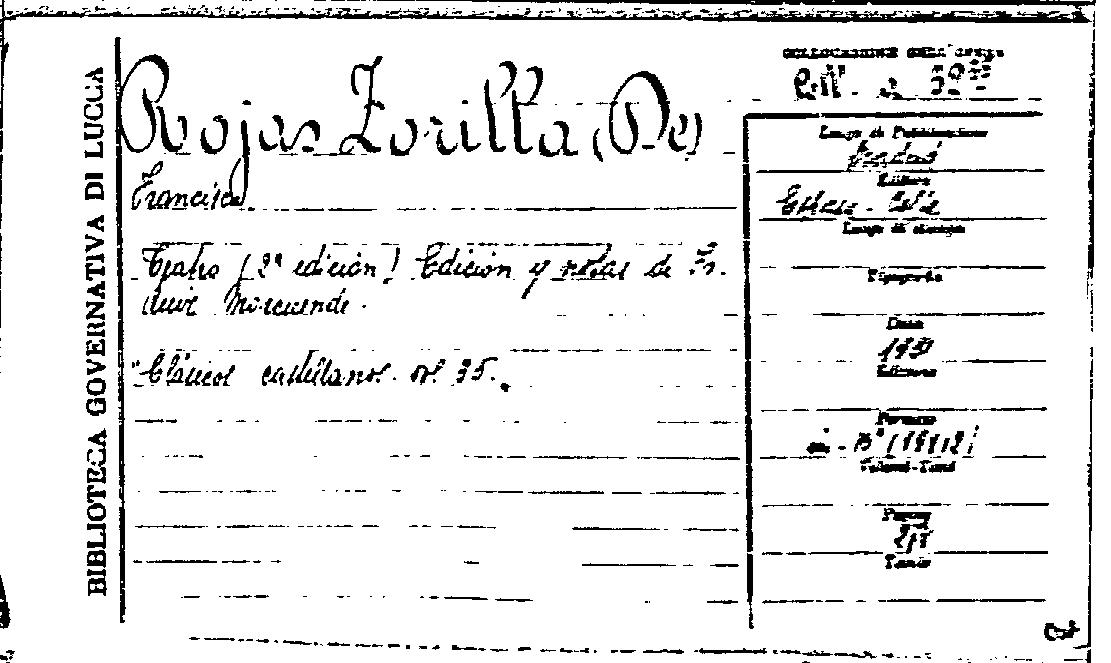 BIBLIOTECA GOVERNATIVA DI LUCCA
Rojas Zorilla (De)
Francisco
Teatro (2ª edición) Edición y notas de Fr.
Morcuende.
"Clásicos castellanos. vol 35.
COLLOCAZIONE DELL'OPERA
Luogo di Pubblicazione
Madrid
Editore
Espasa - Calpe
Luogo di stampa
Tipografia
Data
1931
Edizione
Formato
in - 8° (19x12)
Volumi-Tomi
Pagine
Tavole